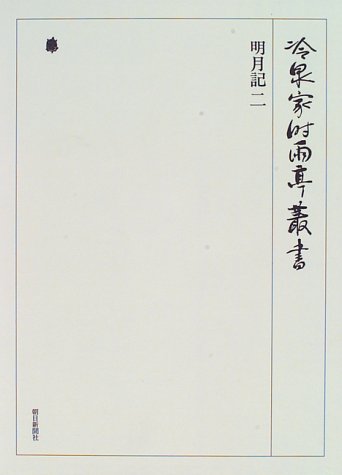 冷泉家時雨亭叢書
明月記 二
朝日新聞社